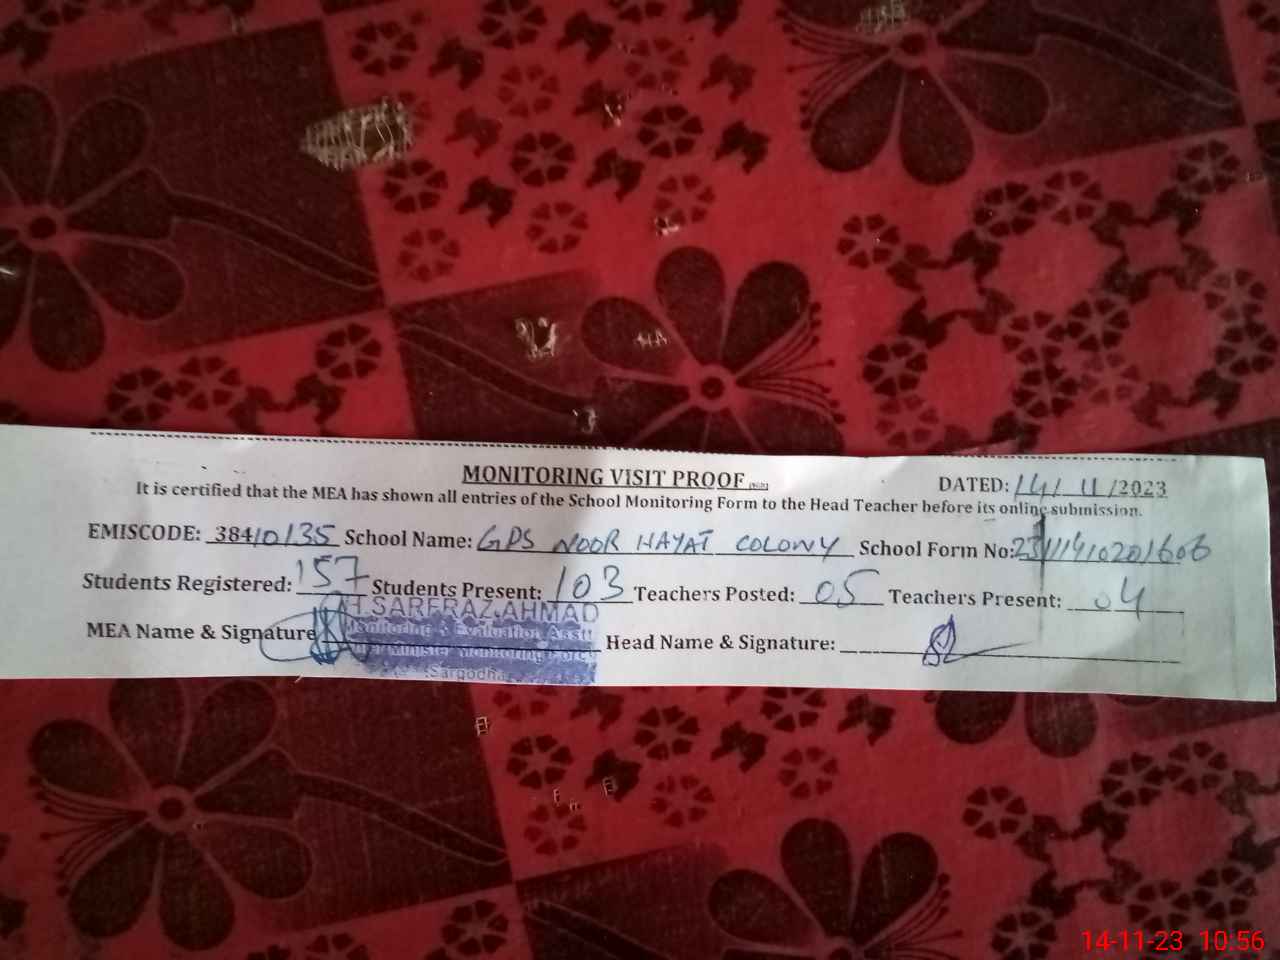 MONITORING VISIT PROOF
DATED: 14/11/2023
It is certified that the MEA has shown all entries of the School Monitoring Form to the Head Teacher before its online submission.
EMISCODE: 38410135 School Name: GPS NOOR HAYAT COLONY School Form No: 23111410201606
Students Registered: 157 Students Present: 103 Teachers Posted: 05 Teachers Present: 04
SARFRAZ AHMAD
Monitoring & Evaluation Asstt
MEA Name & Signature Head Name & Signature:
Minister Monitoring Force
Sargodha
14-11-23 10:56